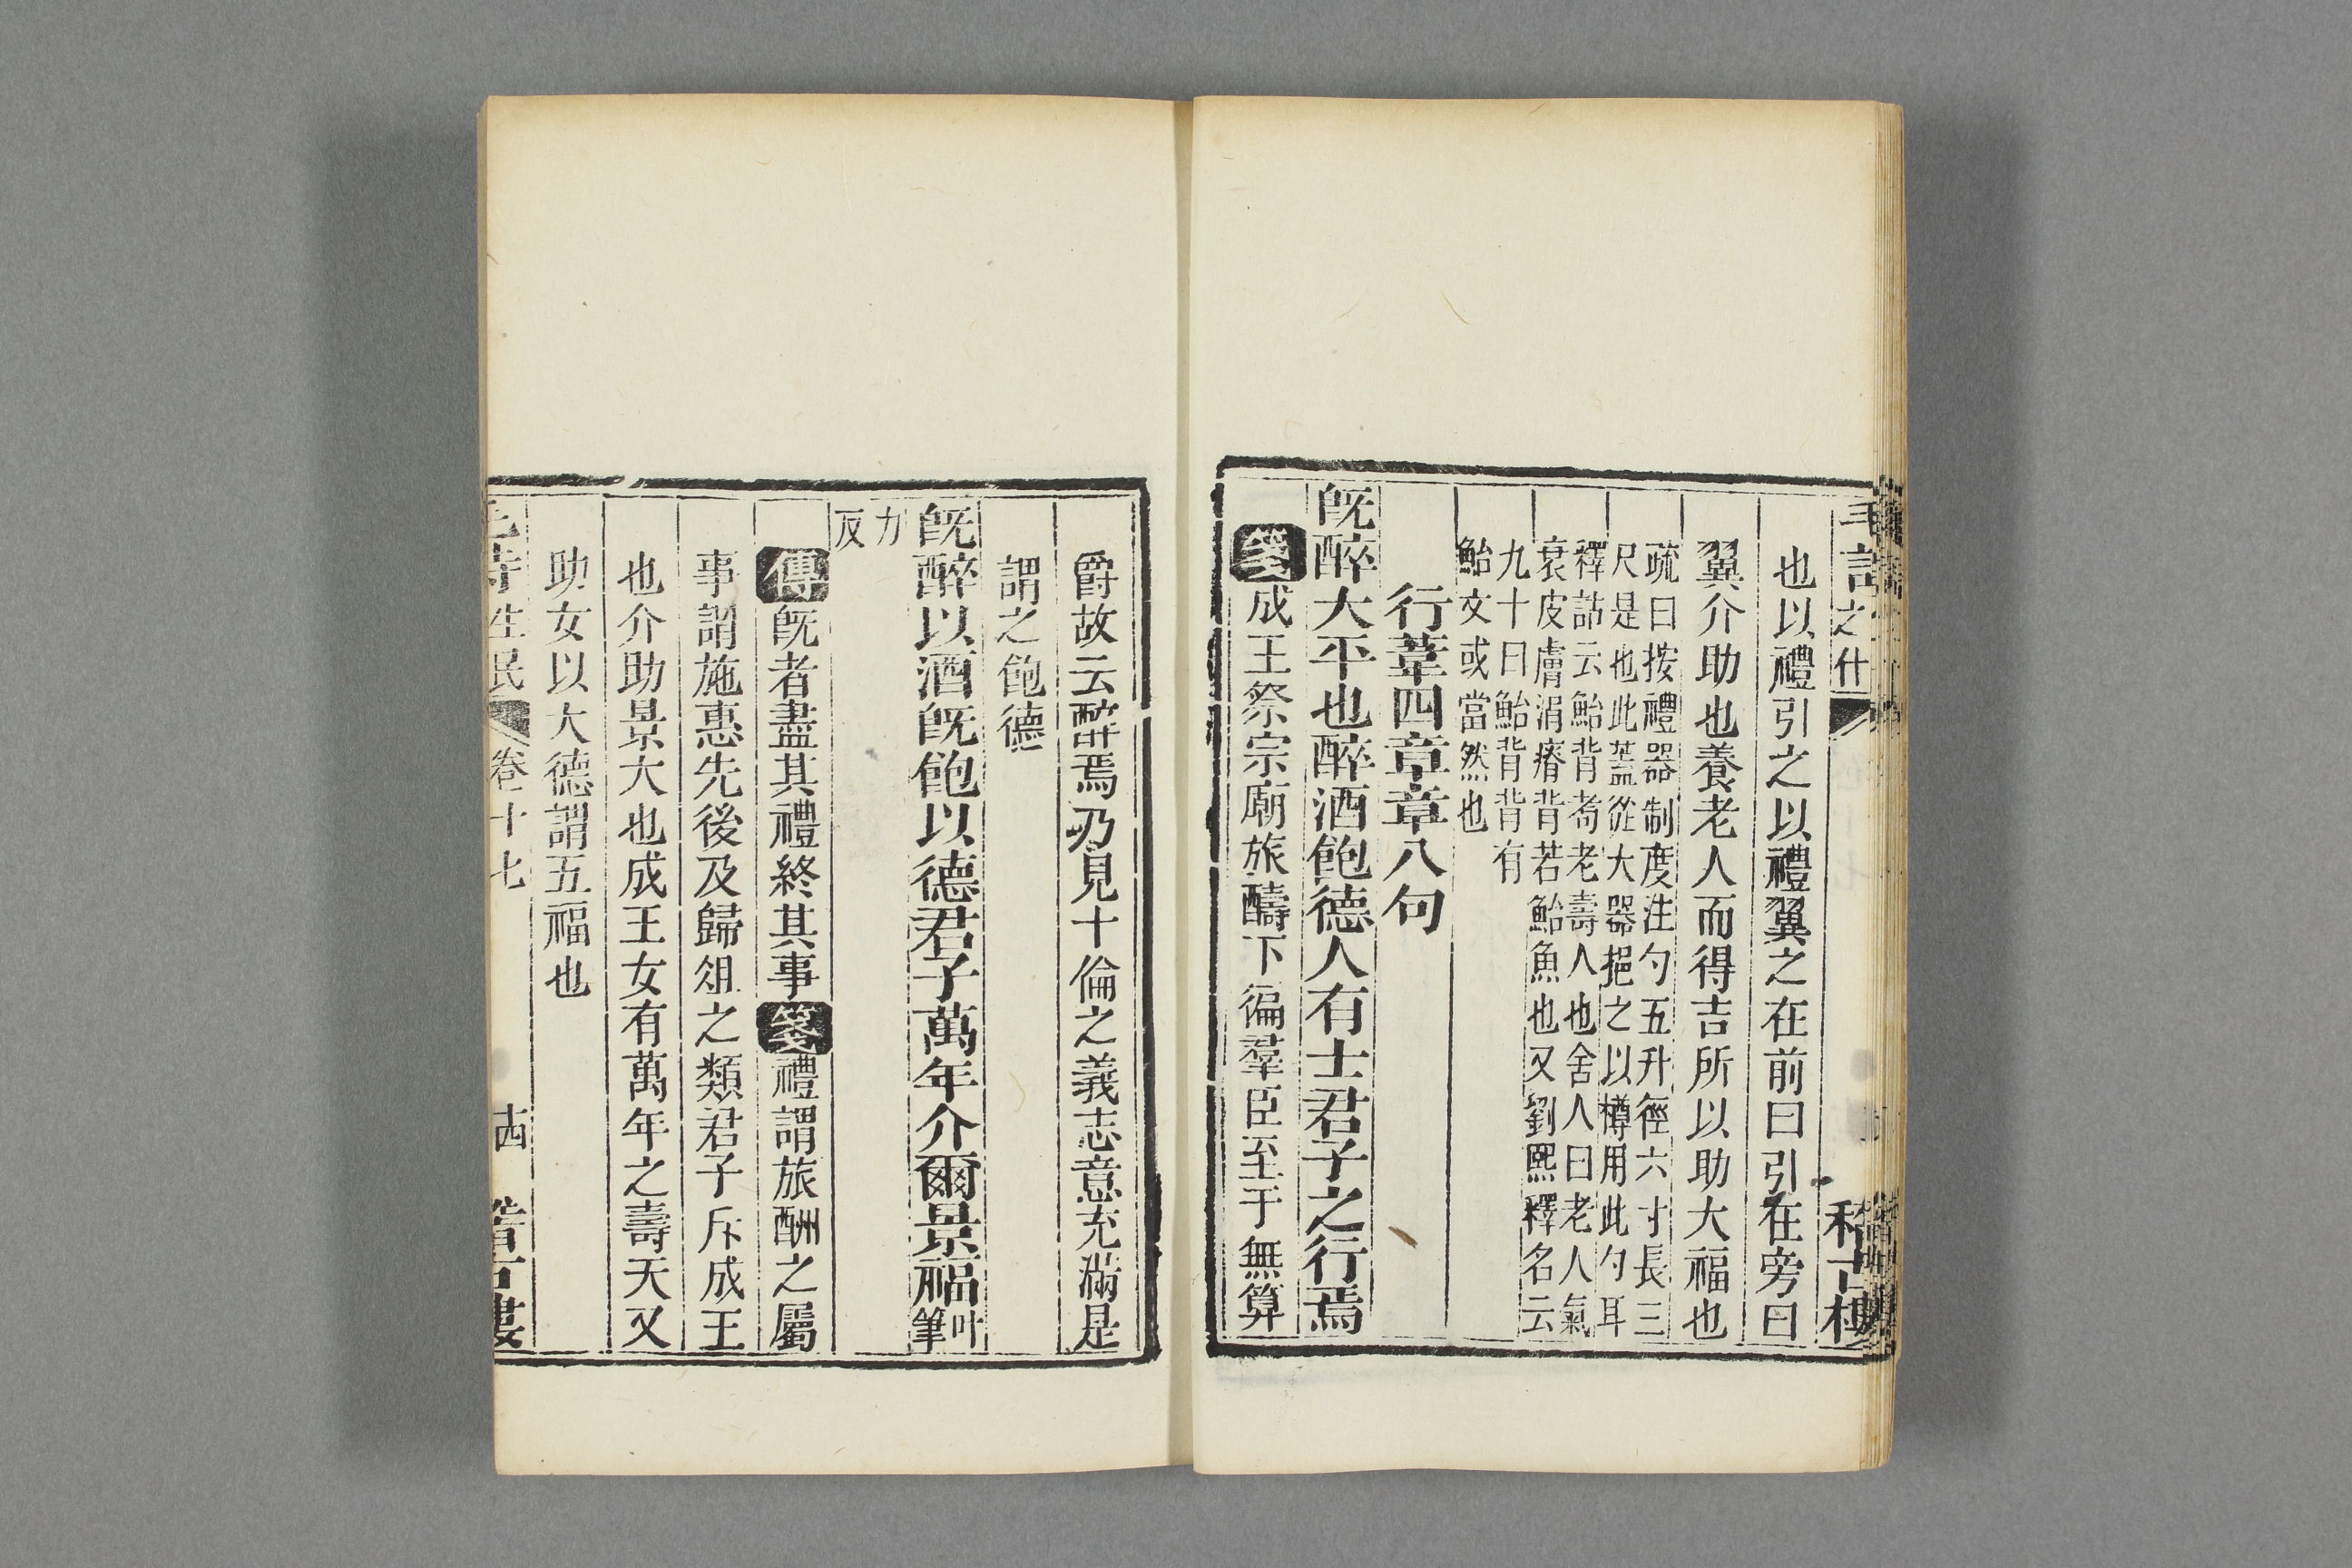 毛詩之什
稽古樓
也以禮引之以禮翼之在前曰引在旁曰
翼介助也養老人而得吉所以助大福也
疏曰按禮器制度注勺五升徑六寸長三
尺是也此蓋從大器挹之以樽用此勺耳
釋詁云鮐背耇老壽人也舍人曰老人氣
衰皮膚涓瘠背若鮐魚也又劉熙釋名云
九十曰鮐背背有
鮐文或當然也
行葦四章章八句
旣醉大平也醉酒飽德人有士君子之行焉
箋成王祭宗廟旅醻下徧羣臣至于無算
爵故云醉焉乃見十倫之義志意充滿是
謂之飽德
旣醉以酒旣飽以德君子萬年介爾景福叶筆
力反
傳旣者盡其禮終其事箋禮謂旅酬之屬
事謂施惠先後及歸俎之類君子斥成王
也介助景大也成王女有萬年之壽天又
助女以大德謂五福也
毛詩生民 卷十七
古樓